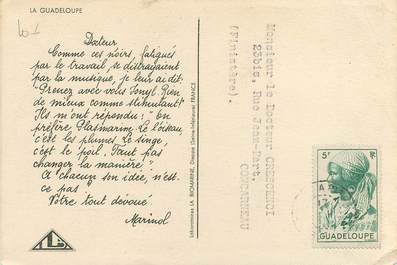 LA GUADELOUPE
Docteur
Comme ces noirs, fatigués
par le travail, se distrayaient
par la musique, je leur ai dit:
"Prenez avec vous Ionyl. Rien
de mieux comme stimulant"
Ils m'ont répondu: "On
préfère Plasmarine. Le l'oiseau,
c'est les plumes. Le singe,
c'est le poil. Faut pas
changer la manière"
A chacun son idée, n'est.
ce pas?
Votre tout dévoué
Marinol
Laboratoires LA BIOMARINE, Dieppe (Seine-Inférieure) FRANCE
Monsieur le Docteur CRESCENCI
23bis, Rue Jean-Bart,
CONCARNEAU
(Finistère).
5F
RF
GUADELOUPE